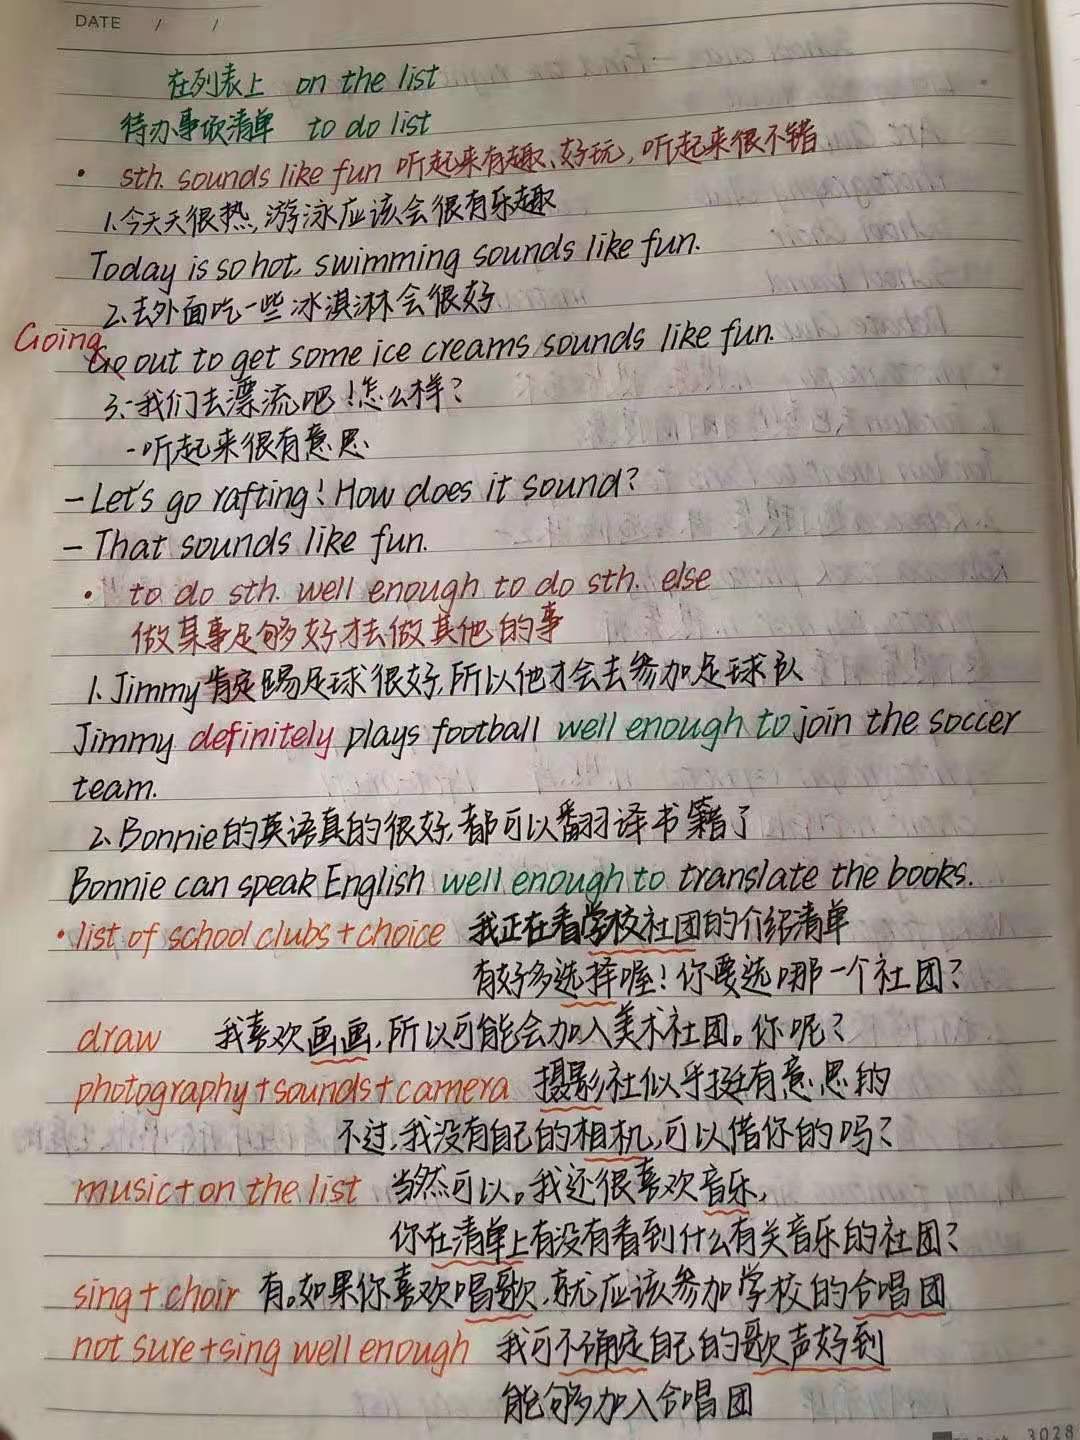 DATE / /
在列表上 on the list
待办事项清单 to do list
• sth. sounds like fun 听起来有趣、好玩,听起来很不错
1.今天天很热,游泳应该会很有乐趣
Today is so hot, swimming sounds like fun.
2.去外面吃一些冰淇淋会很好
Going
Go out to get some ice creams sounds like fun.
3.-我们去漂流吧!怎么样?
-听起来很有意思
- Let's go rafting! How does it sound?
- That sounds like fun.
• to do sth. well enough to do sth. else
做某事足够好才去做其他的事
1.Jimmy肯定踢足球很好,所以他才会去参加足球队
Jimmy definitely plays football well enough to join the soccer
team.
2.Bonnie的英语真的很好,都可以翻译书籍了
Bonnie can speak English well enough to translate the books.
• list of school clubs+choice 我正在看学校社团的介绍清单
有好多选择喔!你要选哪一个社团?
draw 我喜欢画画,所以可能会加入美术社团。你呢?
photography+sounds+camera 摄影社似乎挺有意思的
不过,我没有自己的相机,可以借你的吗?
music+on the list 当然可以。我还很喜欢音乐,
你在清单上有没有看到什么有关音乐的社团?
sing+choir 有。如果你喜欢唱歌,就应该参加学校的合唱团
not sure+sing well enough 我可不确定自己的歌声好到
能够加入合唱团
3028